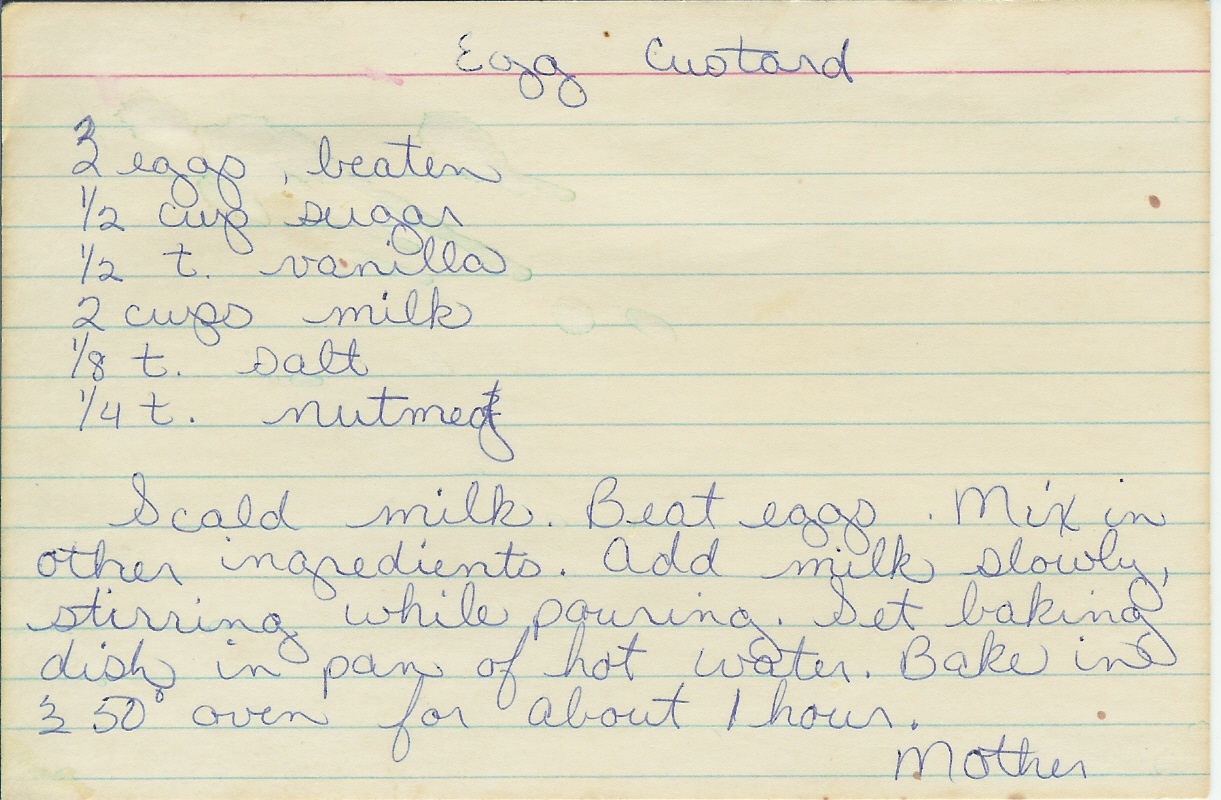 Egg Custard
3 eggs, beaten
1/2 cup sugar
1/2 t. vanilla
2 cups milk
1/8 t. salt
1/4 t. nutmeg
Scald milk. Beat eggs. Mix in
other ingredients. Add milk slowly,
stirring while pouring. Set baking
dish in pan of hot water. Bake in
350° oven for about 1 hour.
Mother